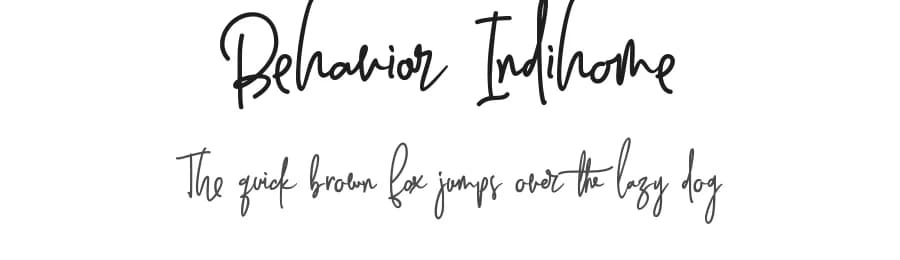 Behavior Indihome
The quick brown fox jumps over the lazy dog